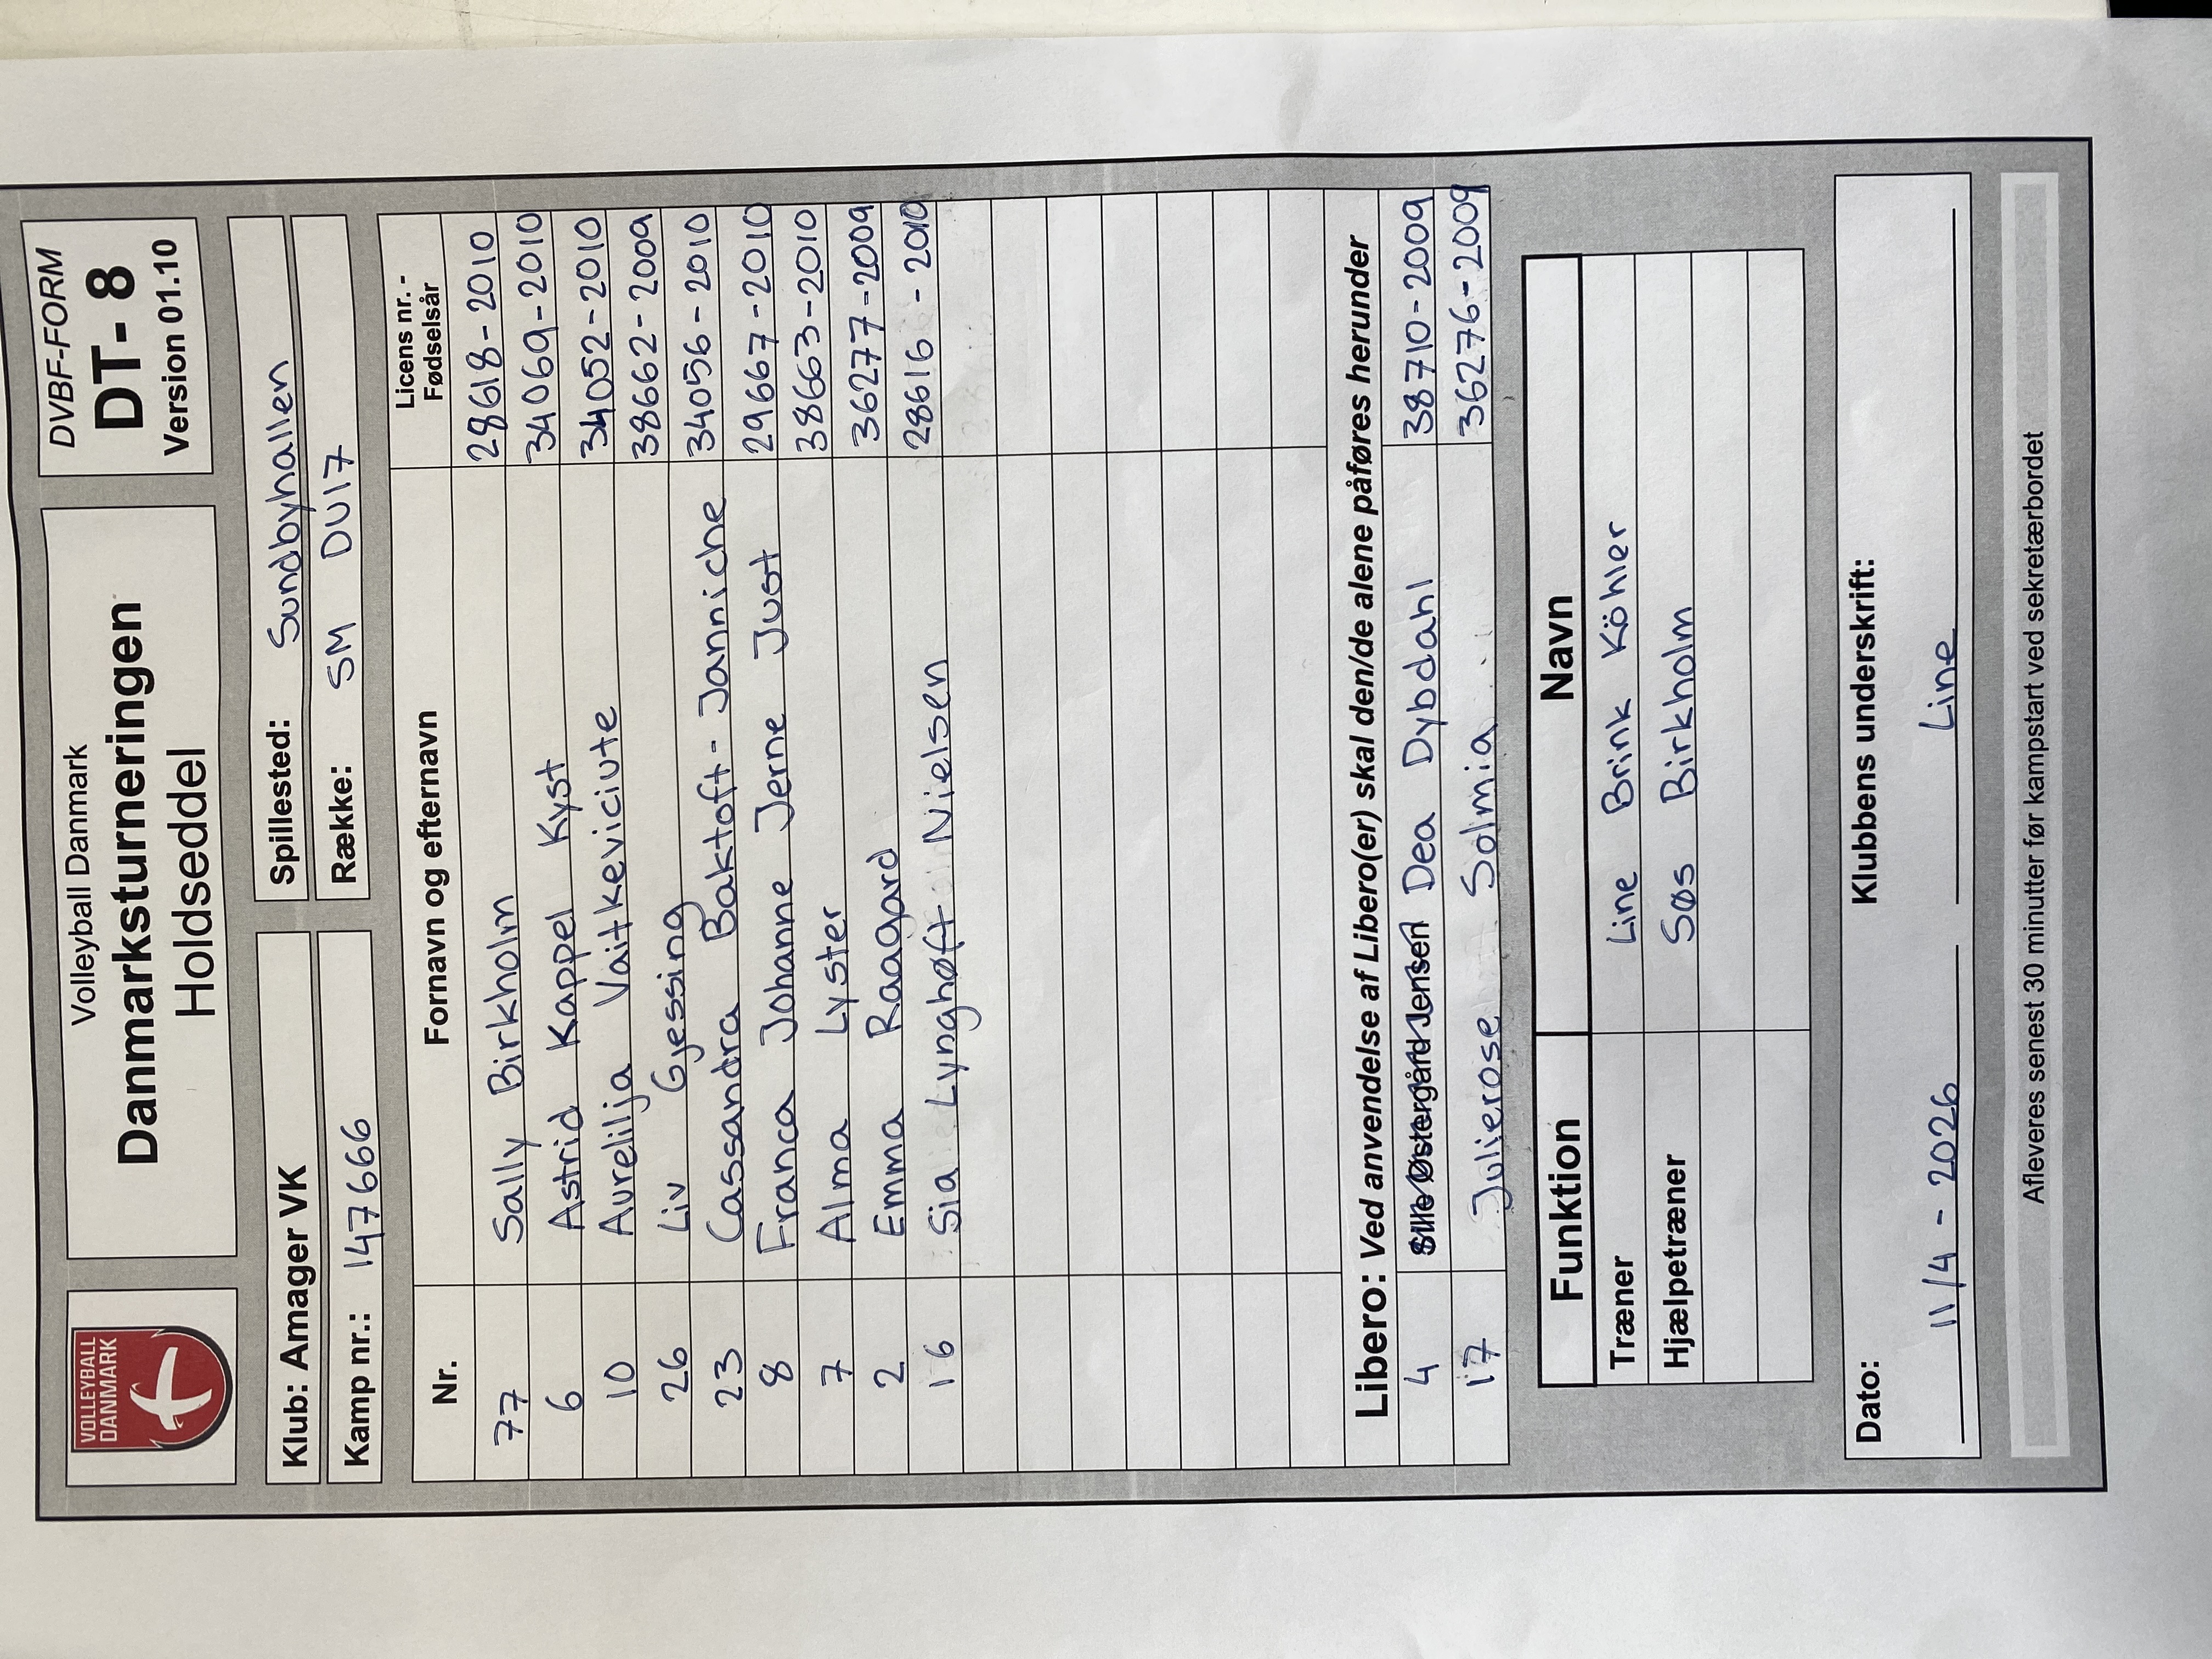 VOLLEYBALL
DANMARK
Volleyball Danmark
Danmarksturneringen
Holdseddel
DVBF-FORM
DT- 8
Version 01.10
Klub: Amager VK
Spillested: Sundbyhallen
Kamp nr.: 147666
Række: SM DU17
Nr. Fornavn og efternavn Licens nr. -
Fødselsår
77 Sally Birkholm 28618-2010
6 Astrid Kappel Kyst 34069-2010
10 Aurelilja Vaitkeviciute 34052-2010
26 Liv Gjessing 38662-2009
23 Cassandra Baktoft-Janniche 34056-2010
8 Franca Johanne Jerne Just 29667-2010
7 Alma Lyster 38663-2010
2 Emma Raagard 36277-2009
16 Sia Lynghøft Nielsen 28616-2010
Libero: Ved anvendelse af Libero(er) skal den/de alene påføres herunder
4 Østergård Jensen Dea Dybdahl 38710-2009
17 Julierose Solmia 36276-2009
Funktion Navn
Træner Line Brink Köhler
Hjælpetræner Søs Birkholm
Dato: Klubbens underskrift:
11/4-2026 Line
Afleveres senest 30 minutter før kampstart ved sekretærbordet